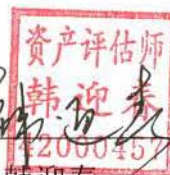 资产评估师
韩迎春
42000457
韩迎春